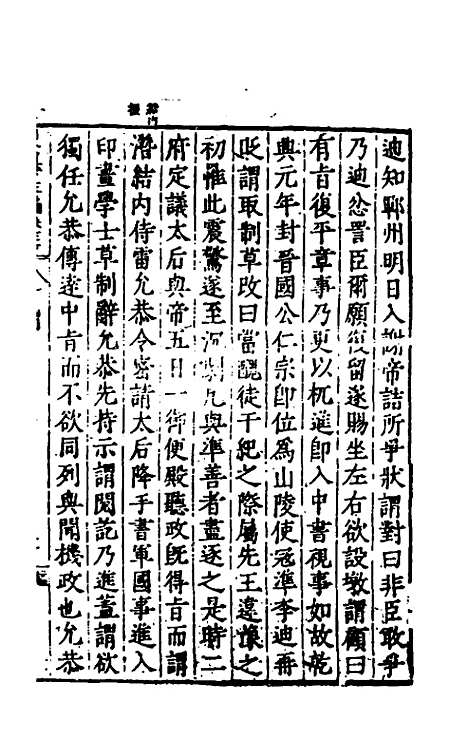 迪知鄆州明日入謝帝詰所爭狀謂對曰非臣敢爭
乃迪忿詈臣爾願復留遂賜坐左右欲設墩謂顧曰
有旨復平章事乃更以杌進即入中書視事如故乾
興元年封晉國公仁宗即位為山陵使寇準李迪再
貶謂取制草改曰當醜徒干紀之際屬先王違豫之
初惟此震驚遂至沉劇凡與準善者盡逐之是時二
府定議太后與帝五日一御便殿聽政既得旨而謂
潛結內侍雷允恭令密請太后降手書軍國事進入
印畫學士草制辭允恭先持示謂閱訖乃進蓋謂欲
獨任允恭傳達中旨而不欲同列與聞機政也允恭